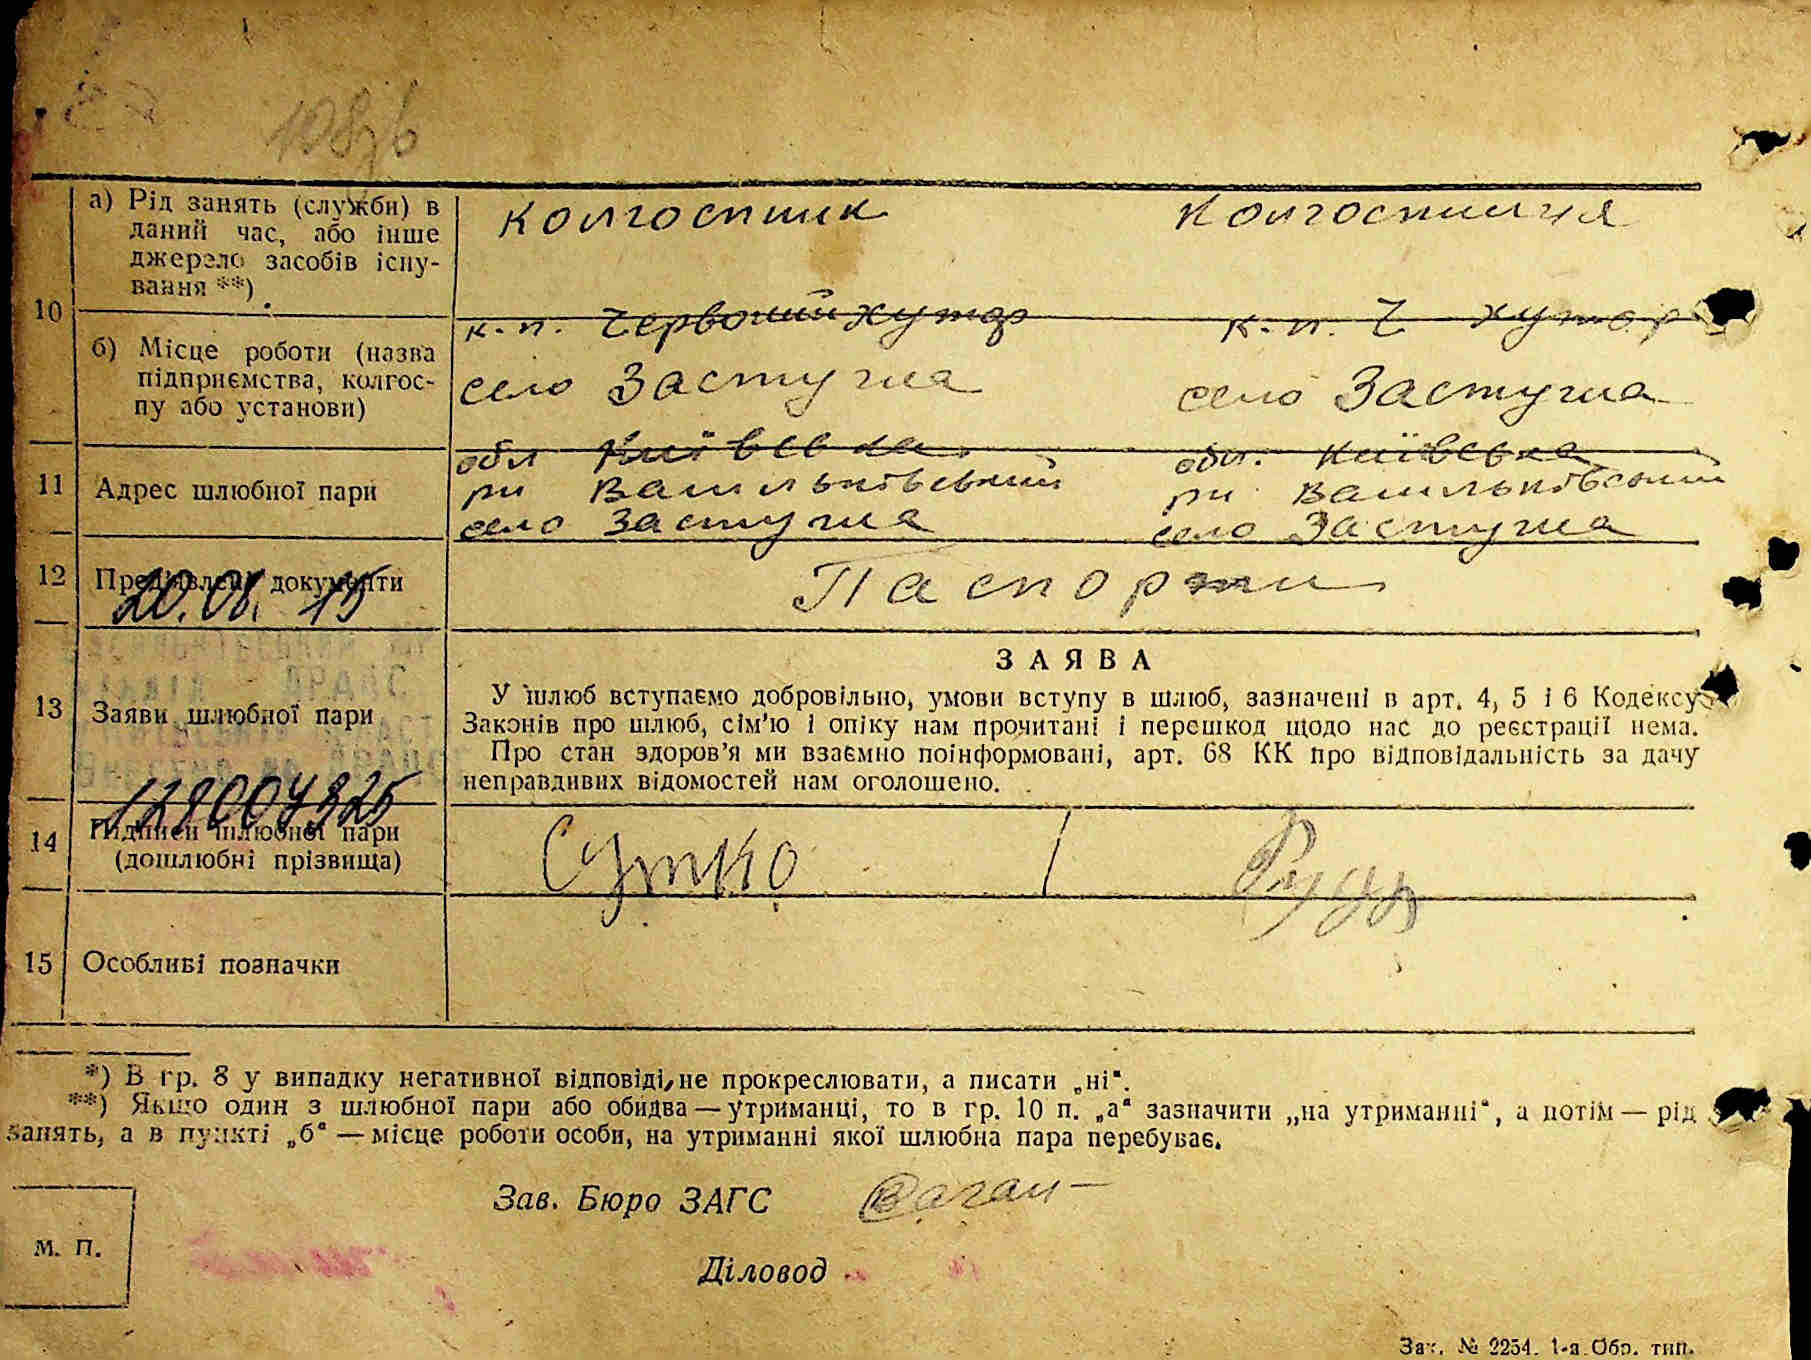 а) Рід занять (служби) в
даний час, або інше
джерело засобів існу-
вання **)
колгоспник колгоспниця
10
б) Місце роботи (назва
підприємства, колгос-
пу або установи)
к-п. Червоний хутор к-п. Ч хутор
село Застугна село Застугна
11 Адрес шлюбної пари
обл Київська обл. Київська
рн Васильківський рн Васильківський
село Застугна село Застугна
12 Пред'явлені документи Паспорти
20.08. 15
13 Заяви шлюбної пари
ЗАЯВА
У шлюб вступаємо добровільно, умови вступу в шлюб, зазначені в арт. 4, 5 і 6 Кодексу
Законів про шлюб, сім'ю і опіку нам прочитані і перешкод щодо нас до реєстрації нема.
Про стан здоров'я ми взаємно поінформовані, арт. 68 КК про відповідальність за дачу
неправдивих відомостей нам оголошено.
14 Підписи шлюбної пари
(дошлюбні прізвища)
Сутко
15 Особливі позначки
*) В гр. 8 у випадку негативної відповіді, не прокреслювати, а писати „ні“.
**) Якщо один з шлюбної пари або обидва — утриманці, то в гр. 10 п. „а“ зазначити „на утриманні“, а потім — рід
занять, а в пункті „б“ — місце роботи особи, на утриманні якої шлюбна пара перебуває.
Зав. Бюро ЗАГС
М. П.
Діловод
Зак. № 2254. 1-а Обр. тип.